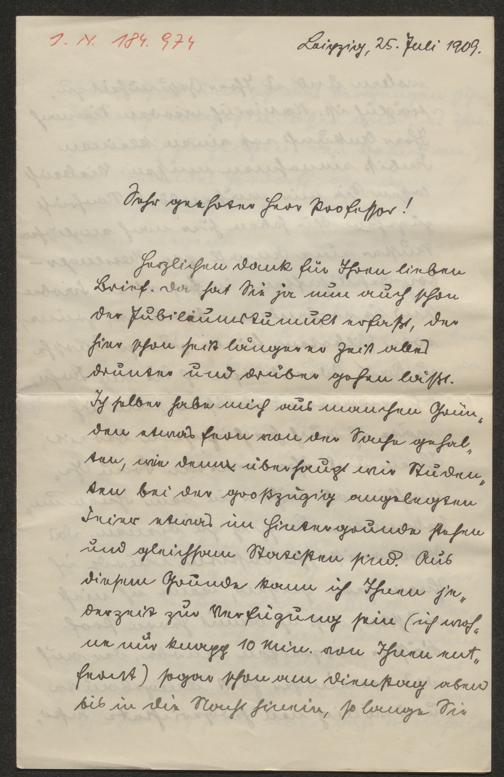 I. N. 184.974
Leipzig, 25. Juli 1909.
Sehr geehrter Herr Professor!
Herzlichen Dank für Ihren lieben
Brief. Da hat Sie ja nun auch schon
der Jubiläumstumult erfaßt, der
hier schon seit längerer Zeit alles
drunter und drüber gehen läßt.
Ich selber habe mich aus manchen Grün„
den etwas fern von der Sache gehal„
ten, wie denn überhaupt wir Studen„
ten bei der großzügig angelegten
Feier etwas im Hintergrunde stehen
und gleichsam Statisten sind. Aus
diesem Grunde kann ich Ihnen je„
derzeit zur Verfügung sein (ich woh„
ne nur knapp 10 Min. von Ihnen ent„
fernt) sogar schon am Dienstag abend
bis in die Nacht hinein, so lange Sie